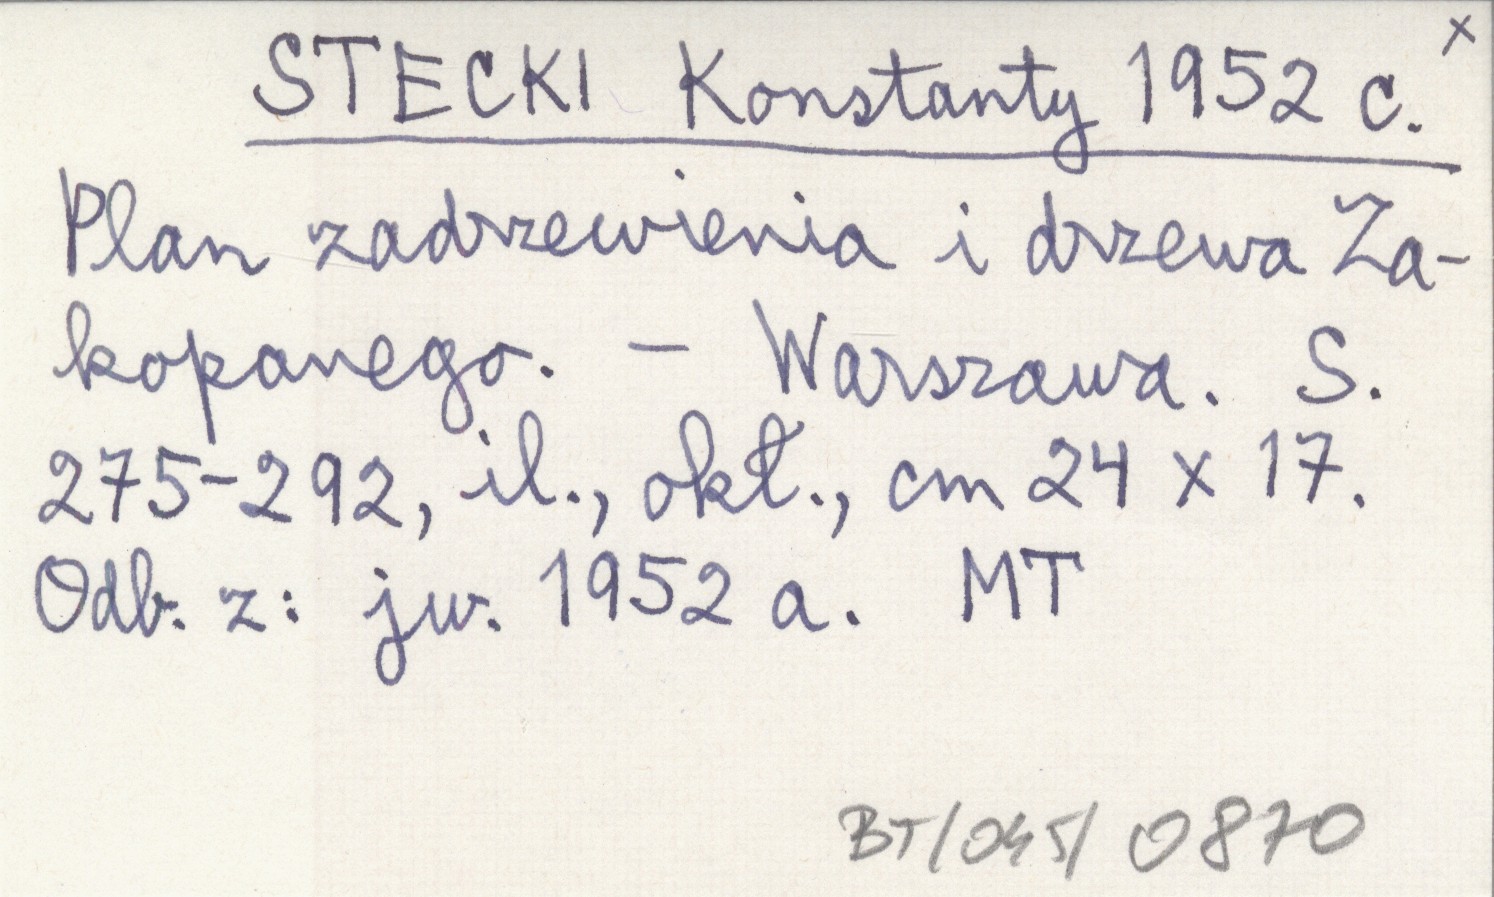 x
STECKI Konstanty 1952 c.
Plan zadrzewienia i drzewa Za-
kopanego. – Warszawa. S.
275-292, il., okł., cm 24 x 17.
Odb. z: jw. 1952 a. MT
BT/045/ 0870